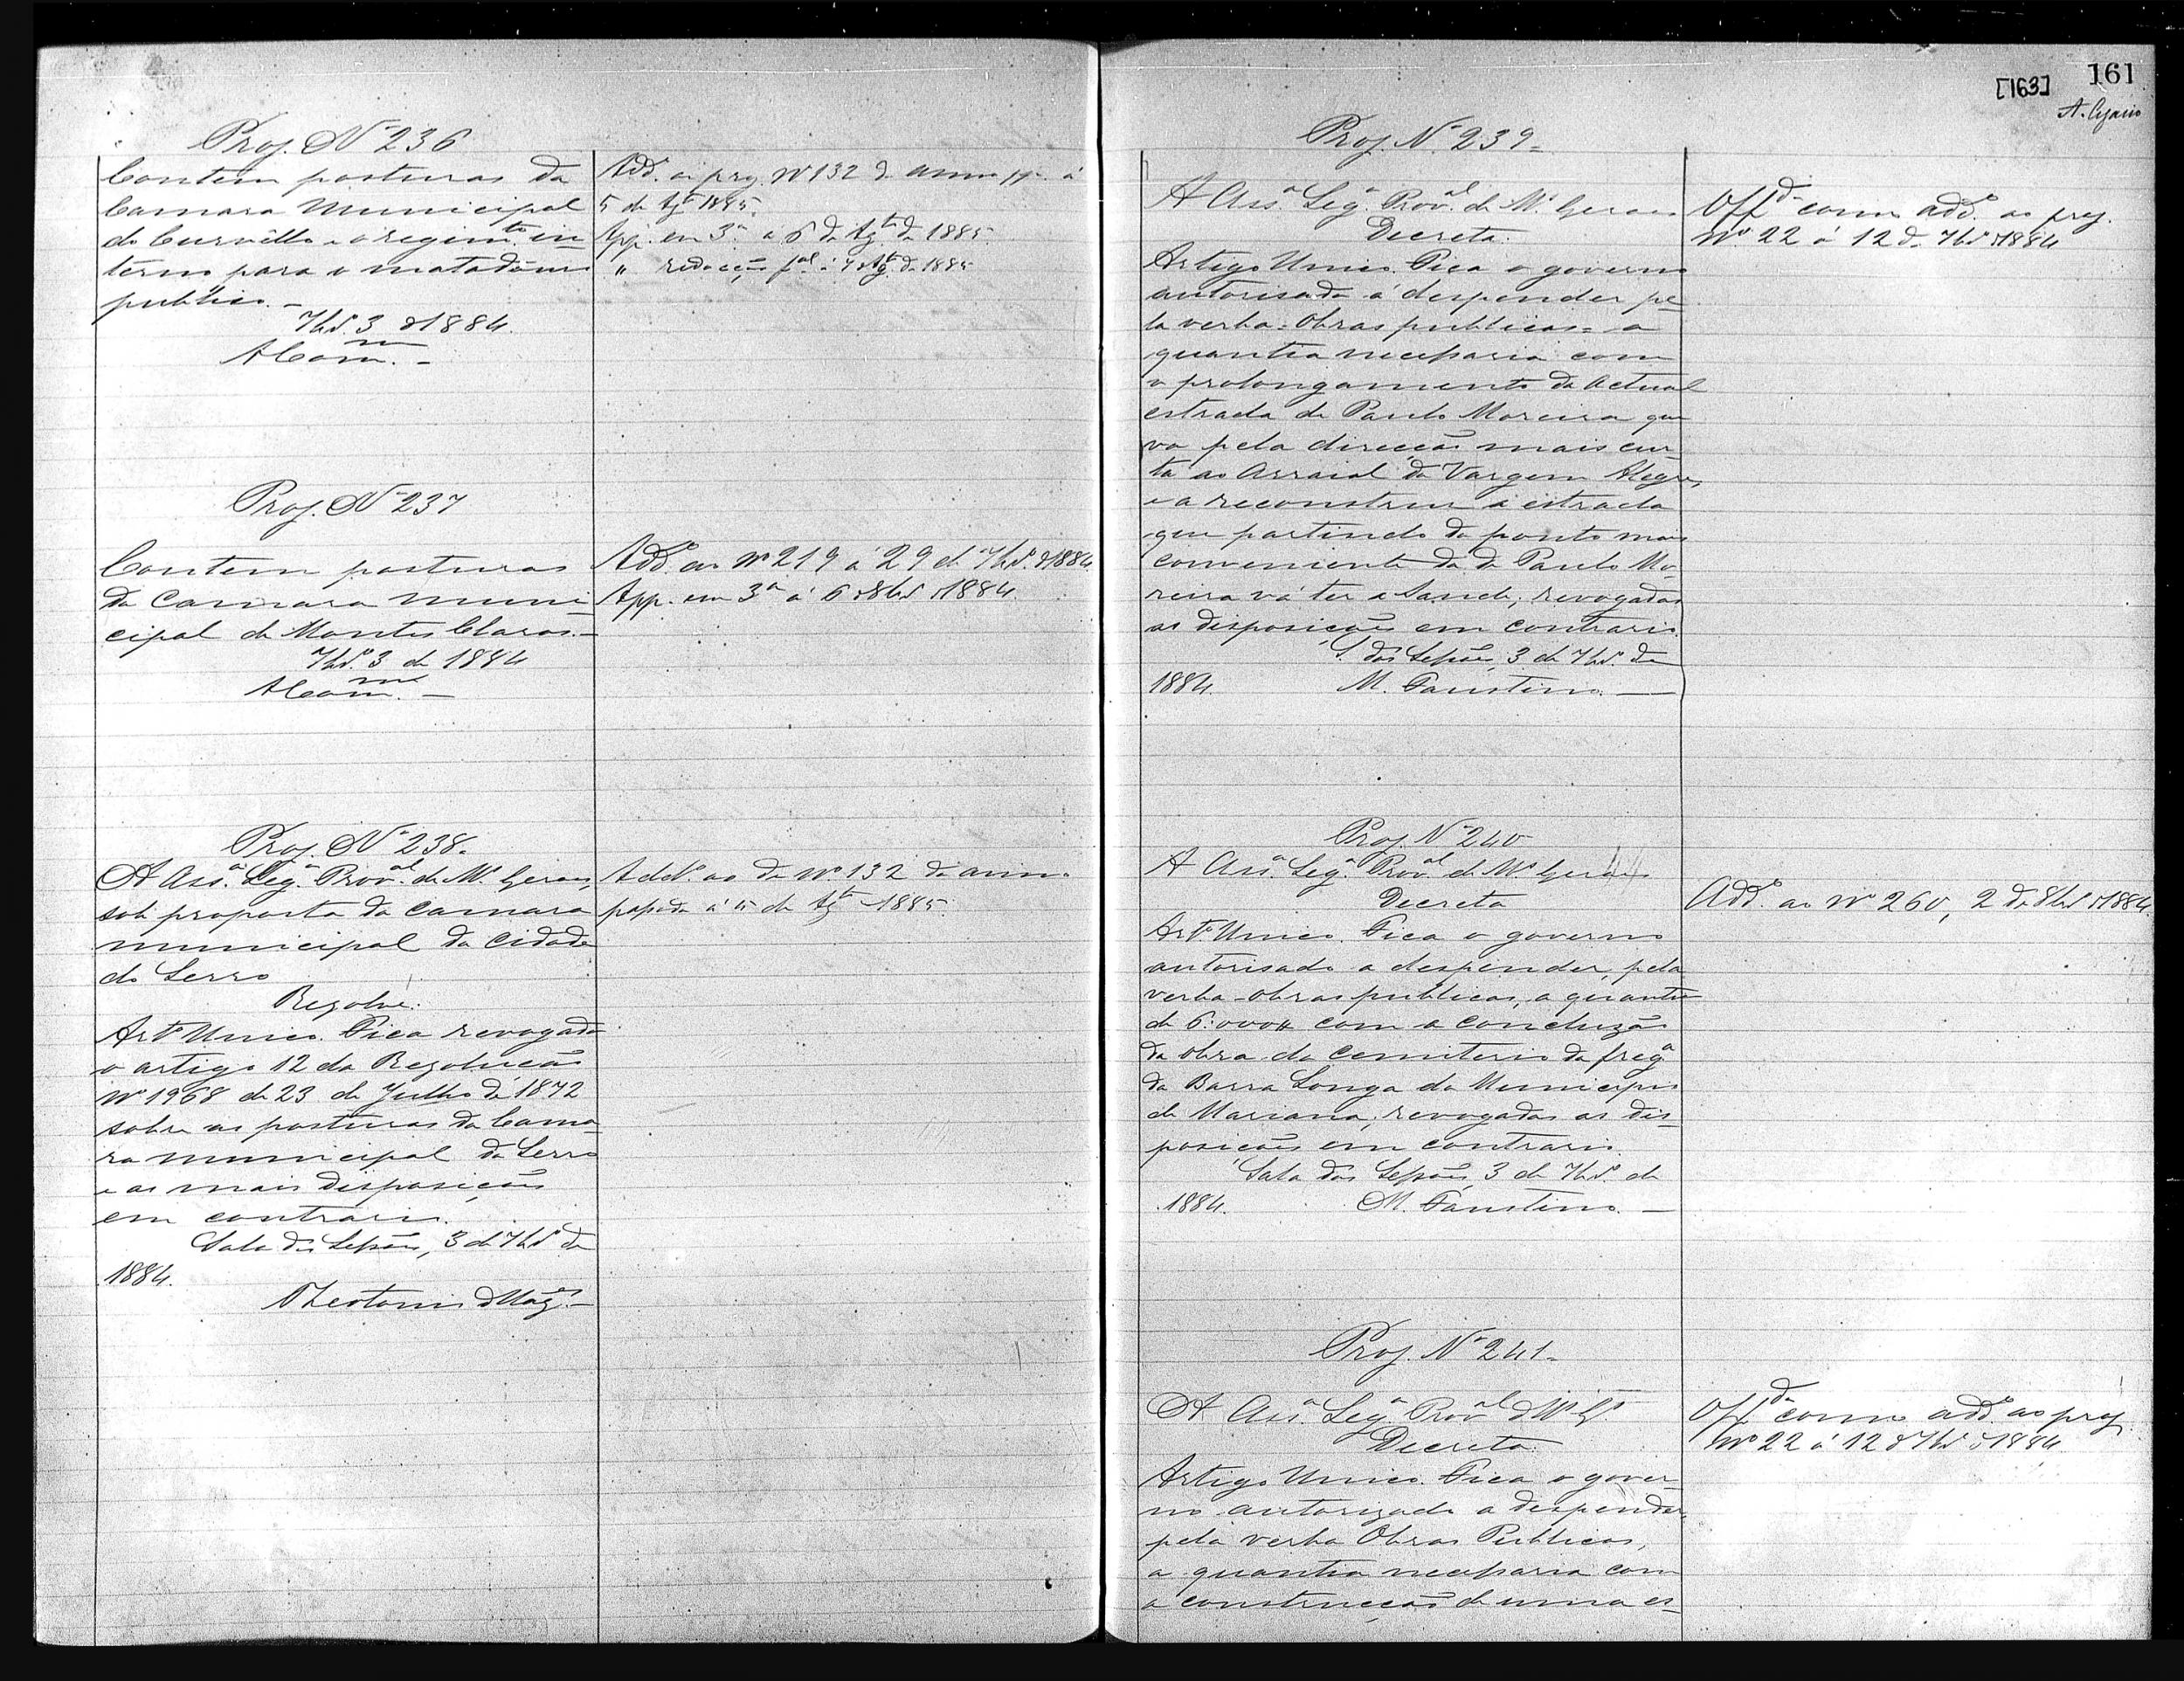 Proj. Nº 236
Contem posturas da
Camara Municipal
do Curvello e o regimto. in-
terno para o matadouro
publico. –
7bro. 3 d 1884.
A Comm. –
Add. ao proj. Nº 132 do anno pp. á
5 de Agto 1885.
App. em 3ª. a 6 de Agto. de 1885.
" redacção fal. á 7 Agto. de 1885
Proj. Nº 237
Contem posturas
da Camara muni-
cipal de Montes Claros. –
7bro. 3 de 1884
A Comm. –
Addo. ao Nº 219 á 29 de 7bro. d 1884.
App. em 3ª á 6 8bro d 1884.
Proj. Nº 238.
A Assa. Lega. Proval. de Ms. Geraes,
sob proposta da Camara
municipal da Cidade
do Serro
Resolve:
Arto. Unico. Fica revogado
o artigo 12 da Resolução
Nº 1968 de 23 de Julho de 1872
sobre as posturas da Cama-
ra municipal do Serro
e as mais disposições
em contrario.
Sala das Sessões, 3 de 7bro de
1884.
Theotonio d Mages. –
Addo. ao de Nº 132 do anno
passado á 5 de Agto 1885.
[163] 161
Proj. Nº 239.
A Assa. Lega. Proval. de Ms. Geraes
Decreta:
Artigo Unico. Fica o governo
autorisado á despender pe-
la verba = Obras publicas = a
quantia necessaria com
o prolongamento da actual
estrada de Paulo Moreira que
vá pela direcção mais cur-
ta ao Arraial da Vargem Alegre,
e a reconstruir a estrada
que partindo do ponto mais
conveniente da de Paulo Mo-
reira vá ter a Saude; revogadas
as disposições em contrario.
S. das Sessões, 3 de 7bro. de
1884. M. Faustino. –
Offda. como addo. ao proj.
Nº 22 á 12 de 7bro d 1884
Proj. Nº 240
A Assa. Lega. Proval. de Ms Geraes
Decreta
Arto. Unico. Fica o governo
autorisado a despender, pela
verba – obras publicas, a quantia
de 6:000$ com a concluzão
da obra do Cemiterio da frega.
da Barra Longa do Municipio
de Marianna; revogadas as dis-
posições em contrario.
Sala das Sessões, 3 de 7bro. de
1884. M. Faustino. –
Addo. ao Nº 260, 2 de 8bro d 1884.
Proj. Nº 241.
A Assa. Lega. Proval. d Ms Gs
Decreta:
Artigo Unico. Fica o gover-
no autorizado a despender,
pela verba Obras Publicas,
a quantia necessaria com
a construcção de uma es-
Offda. como addo. ao proj.
Nº 22 á 12 d 7bro d 1884